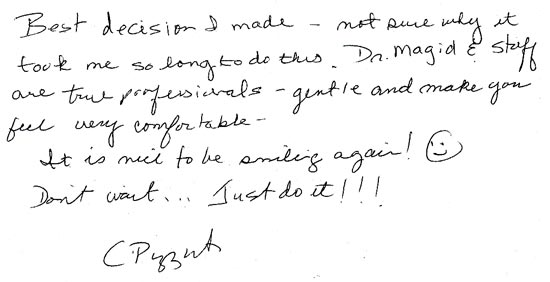 Best decision I made - not sure why it
took me so long to do this. Dr. Magid & staff
are true professionals - gentle and make you
feel very comfortable -
It is nice to be smiling again! ☺
Don't wait... Just do it!!!
C.